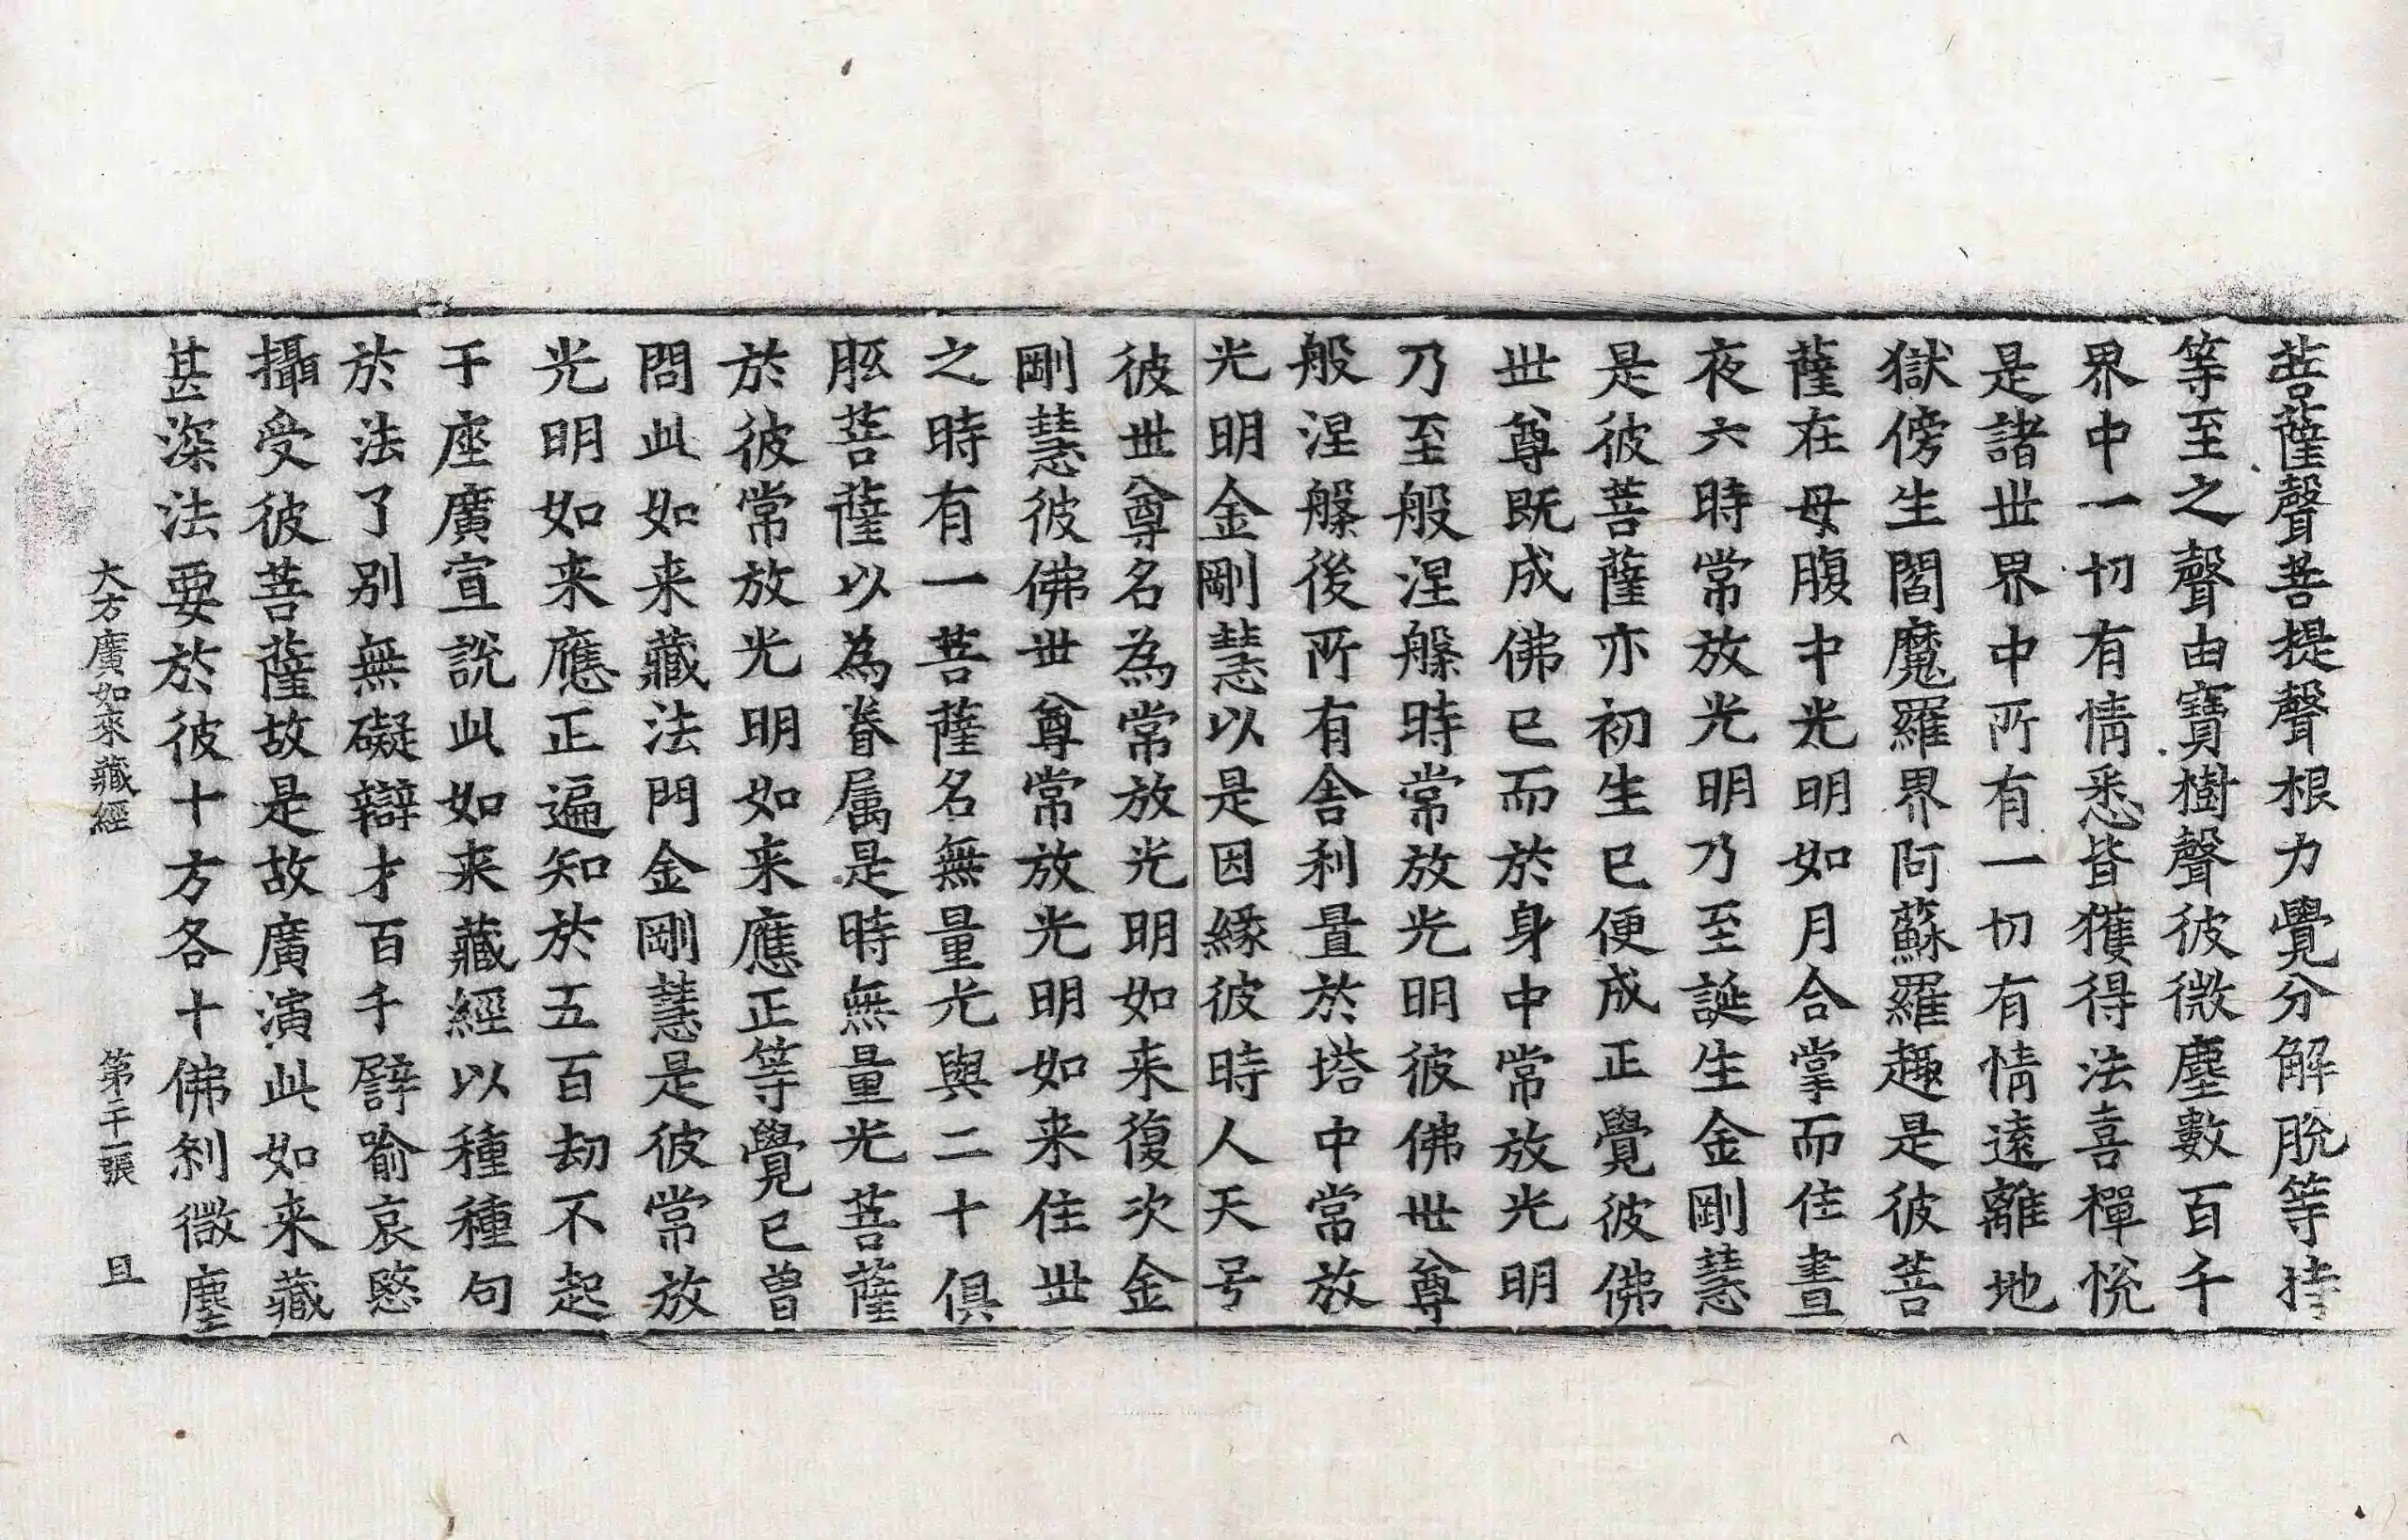 菩薩聲菩提聲根力覺分解脫等持
等至之聲由寶樹聲彼微塵數百千
界中一切有情悉皆獲得法喜禪悅
是諸世界中所有一切有情遠離地
獄傍生閻魔羅界阿蘇羅趣是彼菩
薩在母腹中光明如月合掌而住晝
夜六時常放光明乃至誕生金剛慧
是彼菩薩亦初生已便成正覺彼佛
世尊既成佛已而於身中常放光明
乃至般涅槃時常放光明彼佛世尊
般涅槃後所有舍利置於塔中常放
光明金剛慧以是因緣彼時人天号
彼世尊名為常放光明如来復次金
剛慧彼佛世尊常放光明如来住世
之時有一菩薩名無量光與二十俱
胝菩薩以為眷属是時無量光菩薩
於彼常放光明如来應正等覺已曾
問此如来藏法門金剛慧是彼常放
光明如来應正遍知於五百劫不起
于座廣宣説此如来藏經以種種句
於法了别無礙辯才百千譬喻哀愍
攝受彼菩薩故是故廣演此如来藏
甚深法要於彼十方各十佛刹微塵
大方廣如來藏經 第二十一張 旦